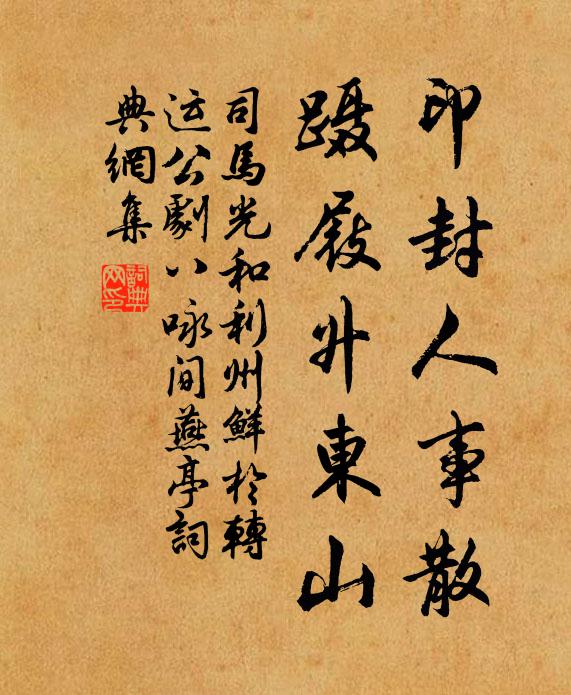 印封人事散
蹑屐升東山
司馬光和利州鮮於轉
运公劇八咏间燕亭詞
典網集
詞典網印